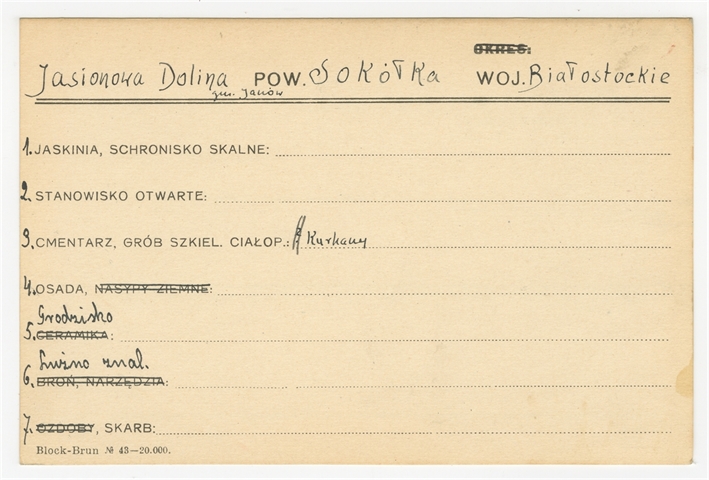 OKRES:
Jasionowa Dolina POW. Sokółka WOJ. Białostockie
gm. Janów
1. JASKINIA, SCHRONISKO SKALNE:
2. STANOWISKO OTWARTE:
3. CMENTARZ, GRÓB SZKIEL. CIAŁOP.: Kurhany
4. OSADA, NASYPY ZIEMNE:
Grodzisko
5. CERAMIKA:
Luźno znal.
6. BROŃ, NARZĘDZIA:
7. OZDOBY, SKARB:
Block-Brun № 43—20.000.